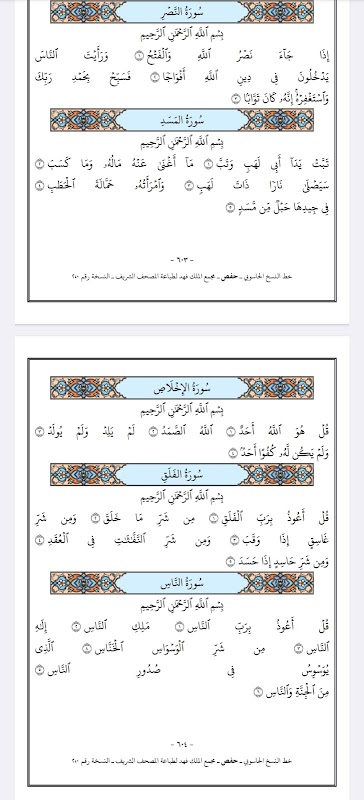 سُورَةُ النَّصۡرِ
بِسۡمِ ٱللَّهِ ٱلرَّحۡمَٰنِ ٱلرَّحِيمِ
إِذَا جَآءَ نَصۡرُ ٱللَّهِ وَٱلۡفَتۡحُ ١ وَرَأَيۡتَ ٱلنَّاسَ
يَدۡخُلُونَ فِي دِينِ ٱللَّهِ أَفۡوَاجٗا ٢ فَسَبِّحۡ بِحَمۡدِ رَبِّكَ
وَٱسۡتَغۡفِرۡهُۚ إِنَّهُۥ كَانَ تَوَّابَۢا ٣
سُورَةُ المَسَدِ
بِسۡمِ ٱللَّهِ ٱلرَّحۡمَٰنِ ٱلرَّحِيمِ
تَبَّتۡ يَدَآ أَبِي لَهَبٖ وَتَبَّ ١ مَآ أَغۡنَىٰ عَنۡهُ مَالُهُۥ وَمَا كَسَبَ ٢
سَيَصۡلَىٰ نَارٗا ذَاتَ لَهَبٖ ٣ وَٱمۡرَأَتُهُۥ حَمَّالَةَ ٱلۡحَطَبِ ٤
فِي جِيدِهَا حَبۡلٞ مِّن مَّسَدِۭ ٥
- ٦٠٣ -
خط النسخ الحاسوبي ـ حفص ـ مجمع الملك فهد لطباعة المصحف الشريف ـ النسخة رقم ٢٠٠
سُورَةُ الإِخۡلَاصِ
بِسۡمِ ٱللَّهِ ٱلرَّحۡمَٰنِ ٱلرَّحِيمِ
قُلۡ هُوَ ٱللَّهُ أَحَدٌ ١ ٱللَّهُ ٱلصَّمَدُ ٢ لَمۡ يَلِدۡ وَلَمۡ يُولَدۡ ٣
وَلَمۡ يَكُن لَّهُۥ كُفُوًا أَحَدُۢ ٤
سُورَةُ الفَلَقِ
بِسۡمِ ٱللَّهِ ٱلرَّحۡمَٰنِ ٱلرَّحِيمِ
قُلۡ أَعُوذُ بِرَبِّ ٱلۡفَلَقِ ١ مِن شَرِّ مَا خَلَقَ ٢ وَمِن شَرِّ
غَاسِقٍ إِذَا وَقَبَ ٣ وَمِن شَرِّ ٱلنَّفَّٰثَٰتِ فِي ٱلۡعُقَدِ ٤
وَمِن شَرِّ حَاسِدٍ إِذَا حَسَدَ ٥
سُورَةُ النَّاسِ
بِسۡمِ ٱللَّهِ ٱلرَّحۡمَٰنِ ٱلرَّحِيمِ
قُلۡ أَعُوذُ بِرَبِّ ٱلنَّاسِ ١ مَلِكِ ٱلنَّاسِ ٢ إِلَٰهِ
ٱلنَّاسِ ٣ مِن شَرِّ ٱلۡوَسۡوَاسِ ٱلۡخَنَّاسِ ٤ ٱلَّذِي
يُوَسۡوِسُ فِي صُدُورِ ٱلنَّاسِ ٥
مِنَ ٱلۡجِنَّةِ وَٱلنَّاسِ ٦
- ٦٠٤ -
خط النسخ الحاسوبي ـ حفص ـ مجمع الملك فهد لطباعة المصحف الشريف ـ النسخة رقم ٢٠٠